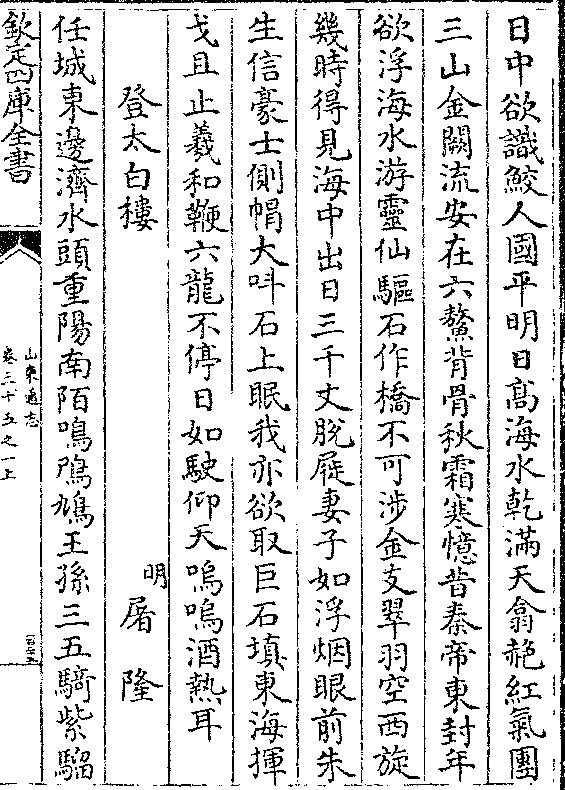 日中欲識鮫人國平明日高海水乾滿天翕赩紅氣團
三山金闕流安在六鰲背骨秋霜寒憶昔秦帝東封年
欲浮海水游靈仙驅石作橋不可涉金支翠羽空西旋
幾時得見海中出日三千丈脫屣妻子如浮烟眼前朱
生信豪士側帽大呌石上眠我亦欲取巨石填東海揮
戈且止羲和鞭六龍不停日如駛仰天嗚嗚酒熱耳
登太白樓
明屠隆
任城東邊濟水頭重陽南陌鳴鴘鳩王孫三五騎紫騮
欽定四庫全書
山東通志
卷三十五之一上